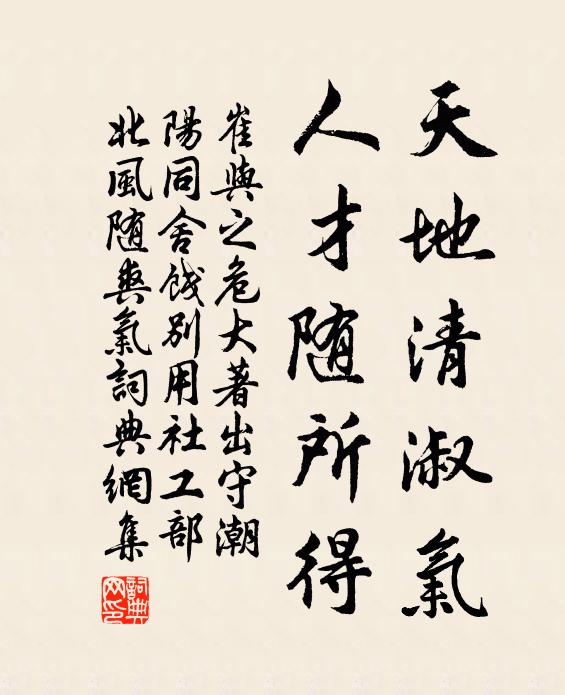 天地清淑氣
人才随所得
崔與之危大著出守潮
陽同舍餞別用社工部
北風随爽氣詞典網集
詞典網印